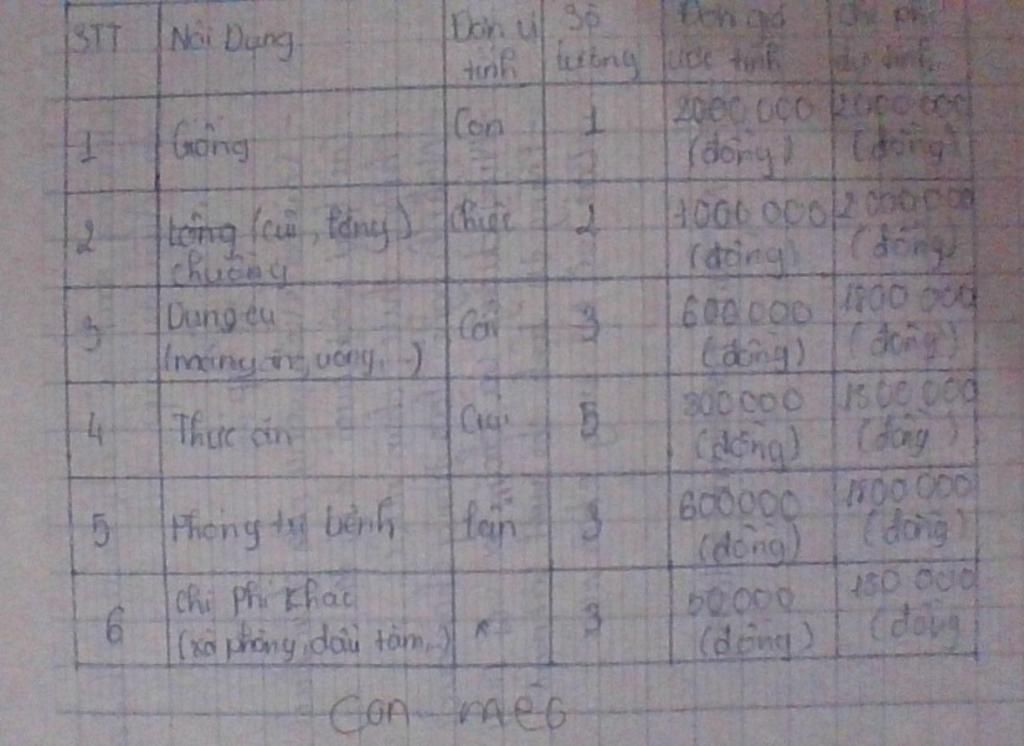 STT Nội Dung Đơn vị Số Đơn giá Chi phí
tính lượng ước tính dự tính
1 Giống Con 1 2000.000 2000.000
(đồng) (đồng)
2 lồng (cũi, ) chiếc 2 1000 000 2 000.000
chuồng (đồng) (đồng)
3 Dụng cụ Cái 3 600.000 1800 000
(máng ăn, uống,..) (đồng) (đồng)
4 Thức ăn 5 300000 1500.000
(đồng) (đồng)
5 Phòng trị bệnh lần 3 600000 1800 000
(đồng) (đồng)
6 Chi phí khác 3 50000 150 000
(xà phòng, dầu tắm,..) (đồng) (đồng
Con mèo